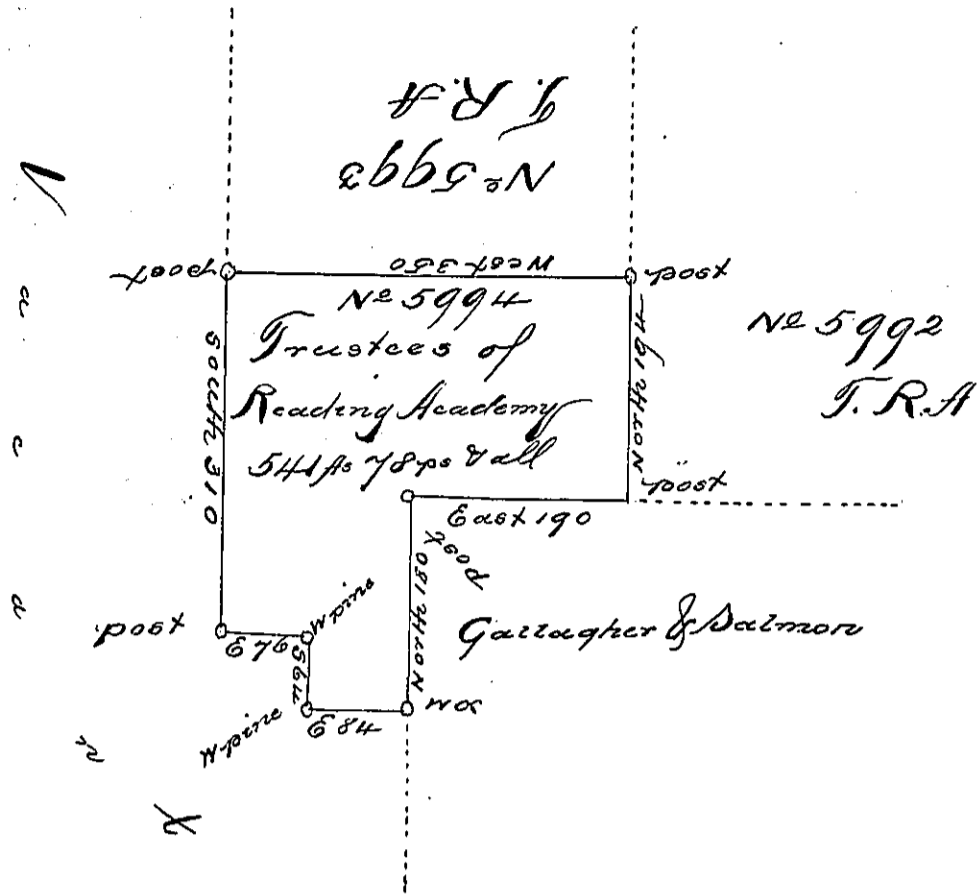 T. R. A
No 5993
post
West 350
post
No 5994
Trustees of
Reading Academy
541 As 78 ps & all
North 194
No 5992
T. R. A
South 310
post
East 190
post
North 180
Gallagher & Salmon
post
E 76
W pine
S 64
W pine
E 84
W O
Vacant